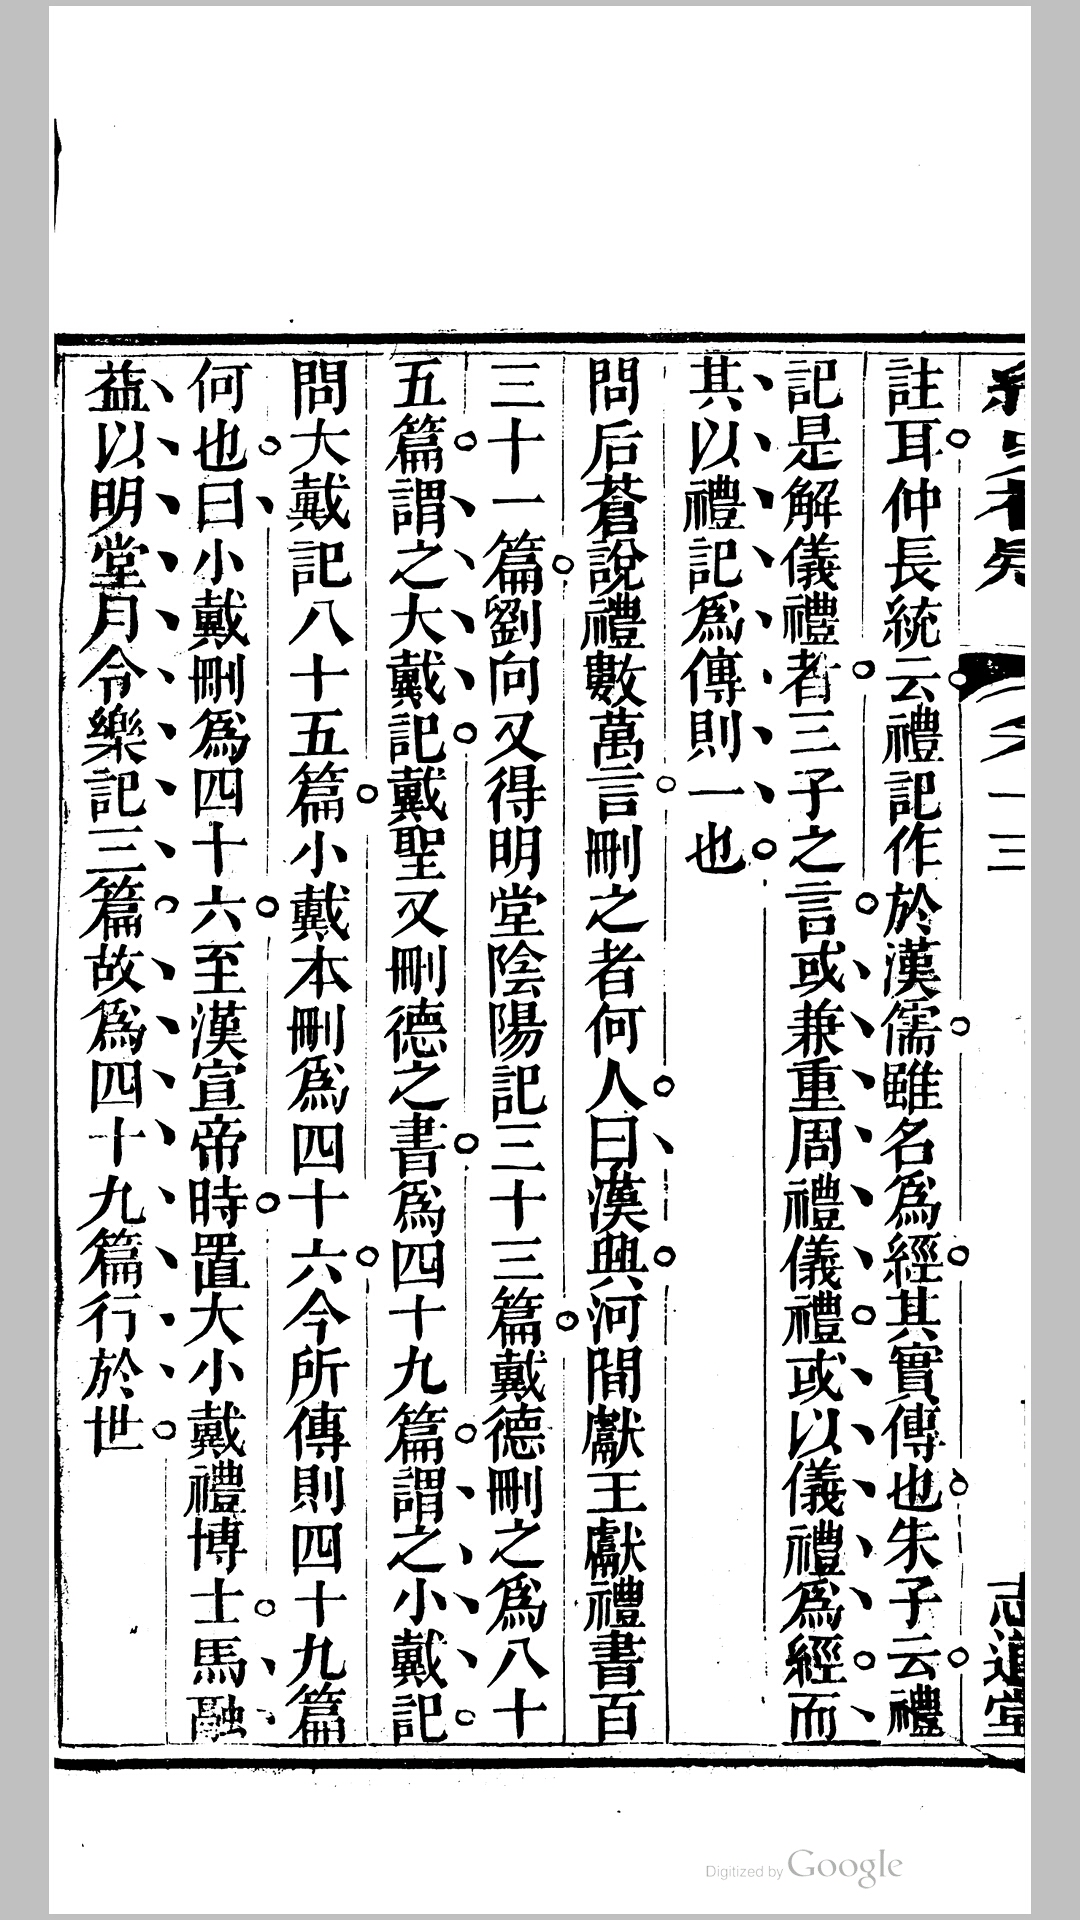 註耳仲長統云禮記作於漢儒雖名爲經其實傳也朱子云禮
記是解儀禮者三子之言或兼重周禮儀禮或以儀禮爲經而
其以禮記爲傳則一也
問后蒼說禮數萬言刪之者何人曰漢興河間獻王獻禮書百
三十一篇劉向又得明堂陰陽記三十三篇戴德刪之爲八十
五篇謂之大戴記戴聖又刪德之書爲四十九篇謂之小戴記
問大戴記八十五篇小戴本刪爲四十六今所傳則四十九篇
何也曰小戴刪爲四十六至漢宣帝時置大小戴禮博士馬融
益以明堂月令樂記三篇故爲四十九篇行於世
Digitized by Google